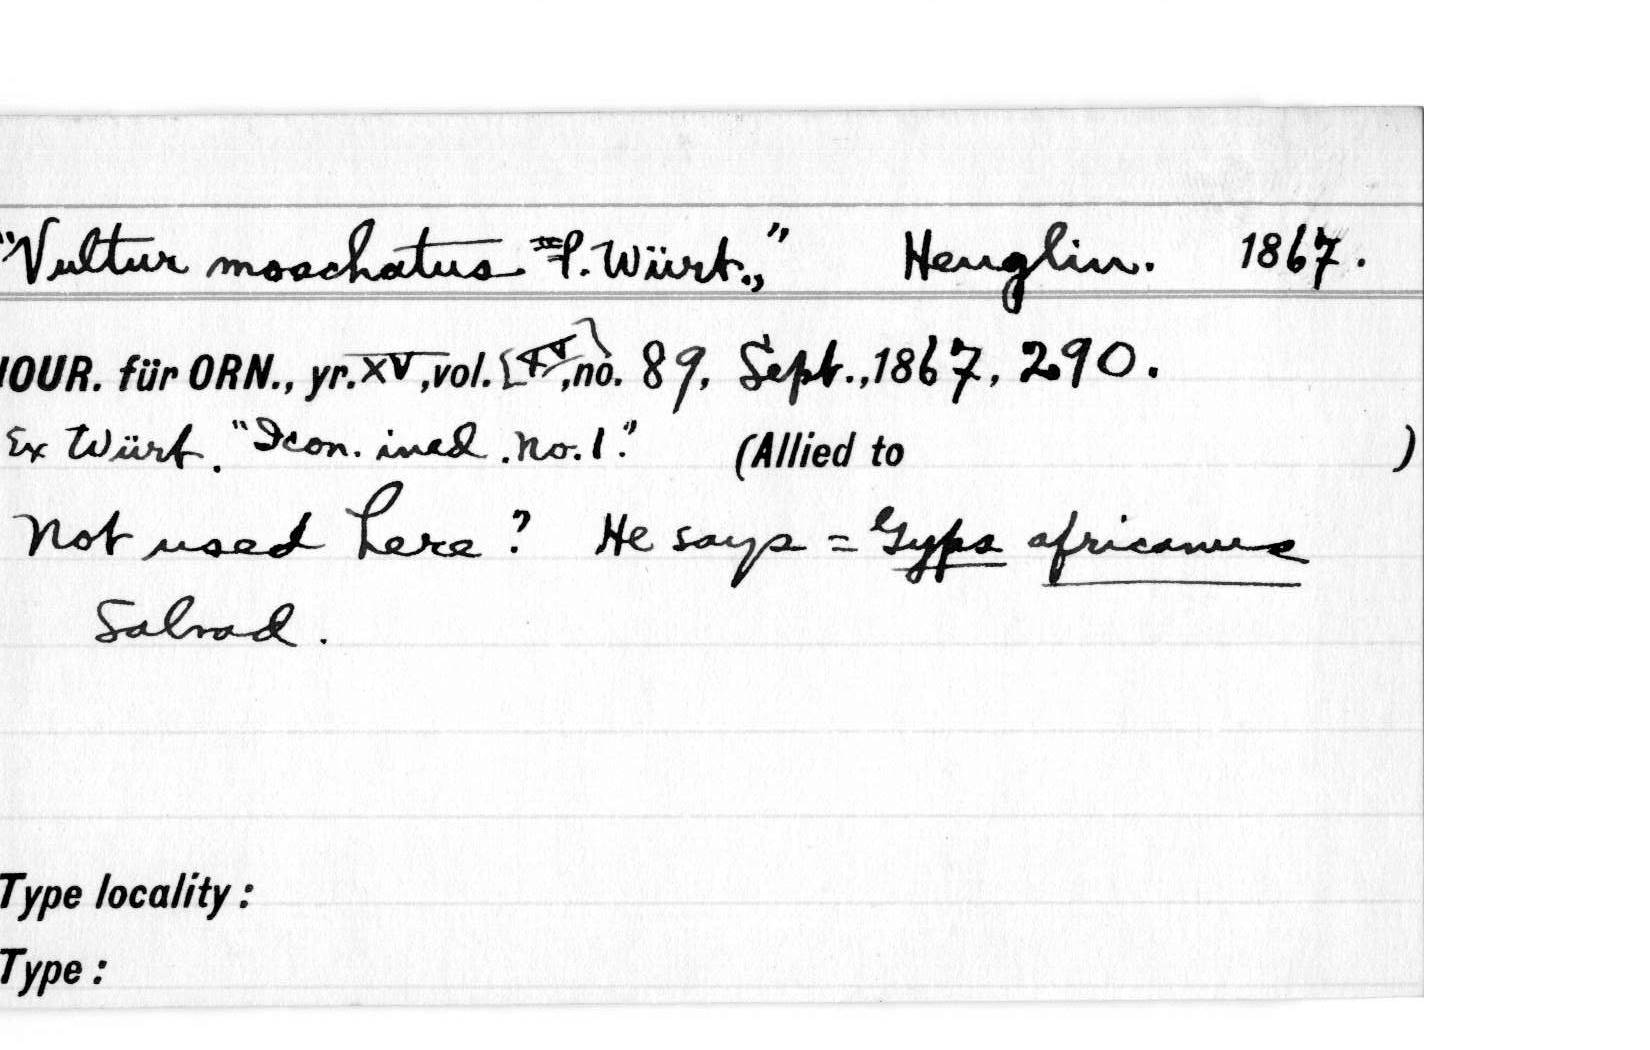 "Vultur moschatus P. Würt.," Heuglin. 1867.
JOUR. für ORN., yr. XV, vol. [XV], no. 89, Sept., 1867, 290.
Ex Würt. "Icon. ined. No. 1." (Allied to )
Not used here? He says = Gyps africanus
Salvad.
Type locality:
Type: